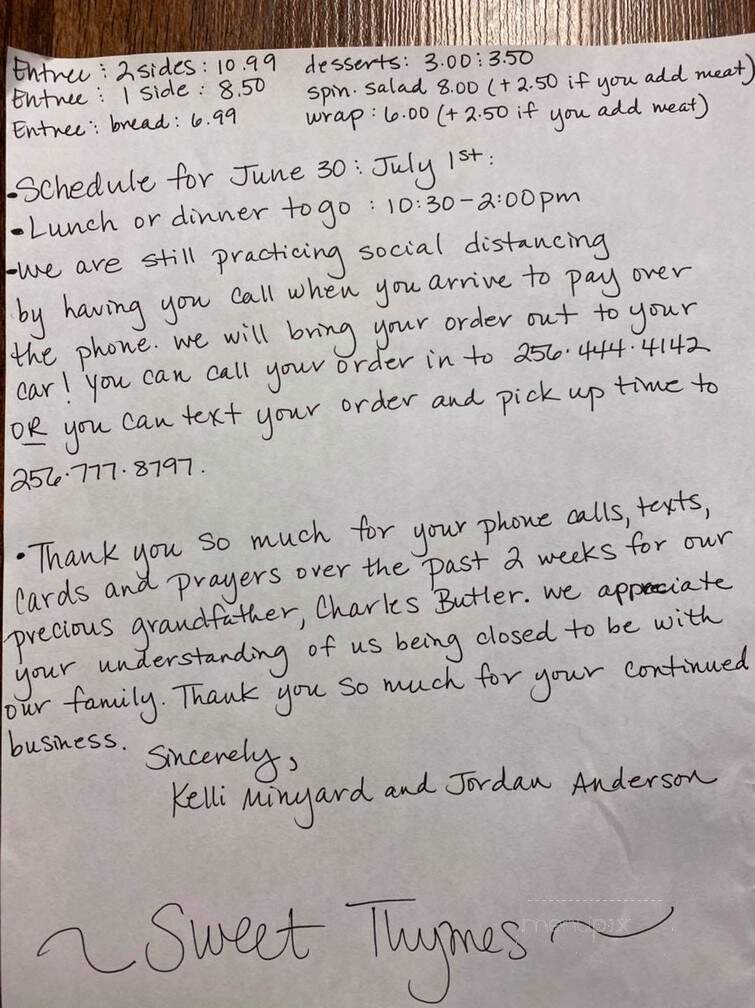 Entree : 2 sides : 10.99 desserts: 3.00 : 3.50
Entree : 1 side : 8.50 spin. salad 8.00 (+ 2.50 if you add meat)
Entree : bread : 6.99 wrap : 6.00 (+ 2.50 if you add meat)
• Schedule for June 30 : July 1st :
• Lunch or dinner to go : 10:30 - 2:00 pm
- we are still practicing social distancing
by having you call when you arrive to pay over
the phone. we will bring your order out to your
car! You can call your order in to 256.444.4142
OR you can text your order and pick up time to
256.777.8797.
• Thank you so much for your phone calls, texts,
cards and prayers over the past 2 weeks for our
precious grandfather, Charles Butler. we appreciate
your understanding of us being closed to be with
our family. Thank you so much for your continued
business.
Sincerely,
Kelli Minyard and Jordan Anderson
~ Sweet Thymes ~
menupix